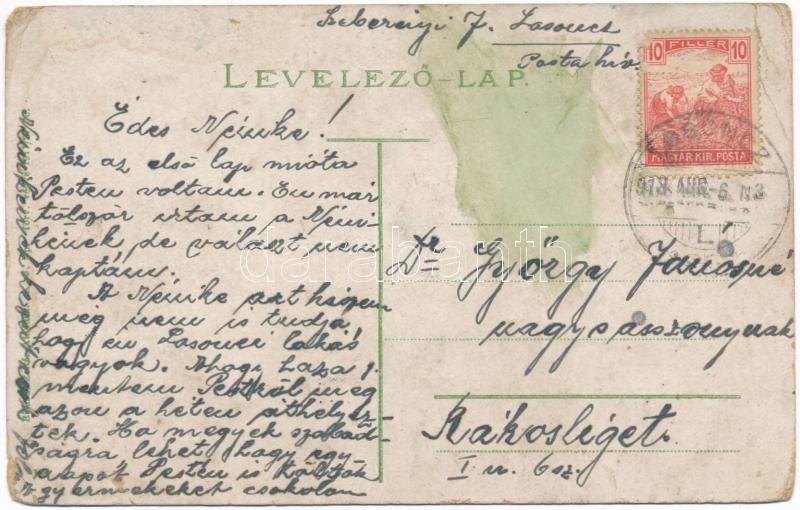 Szeberényi J. Losoncz
Posta hiv.
LEVELEZŐ-LAP.
10 FILLÉR 10
MAGYAR KIR. POSTA
918 AUG -6 N3
L!
Édes Nénike!
Ez az első lap mióta
Pesten voltam. Én már
tölszőr irtam a Néni-
kének de választ nem
kaptam.
A Nénike azt hiszem
még nem is tudja
hogy én Losonci lakós
vagyok. Ahogy haza
mentem Pestről még
azon a héten áthelyez-
tek. Ha megyek szabad-
ságra lehet hogy egy
napot Pesten is töltök
gyermekeket csokolom
Dr György Jánosné
nagysásszonynak
Rákosliget.
I u. 6 sz.
darabanth.com